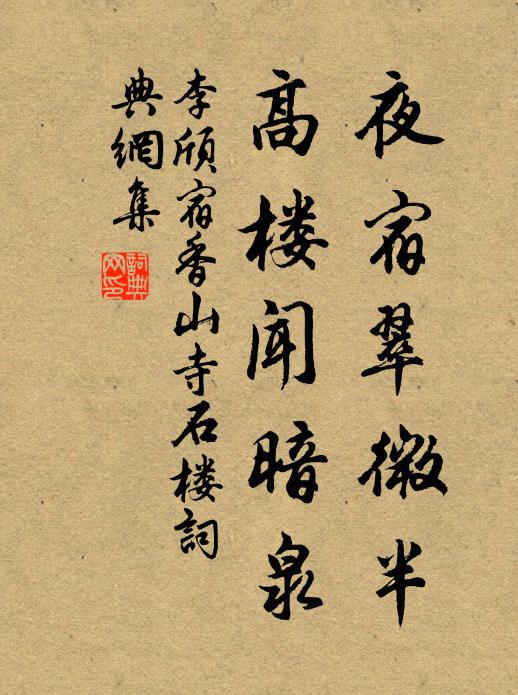 夜宿翠微半
高楼闻暗泉
李颀宿香山寺石楼詞
典網集
詞典
网印